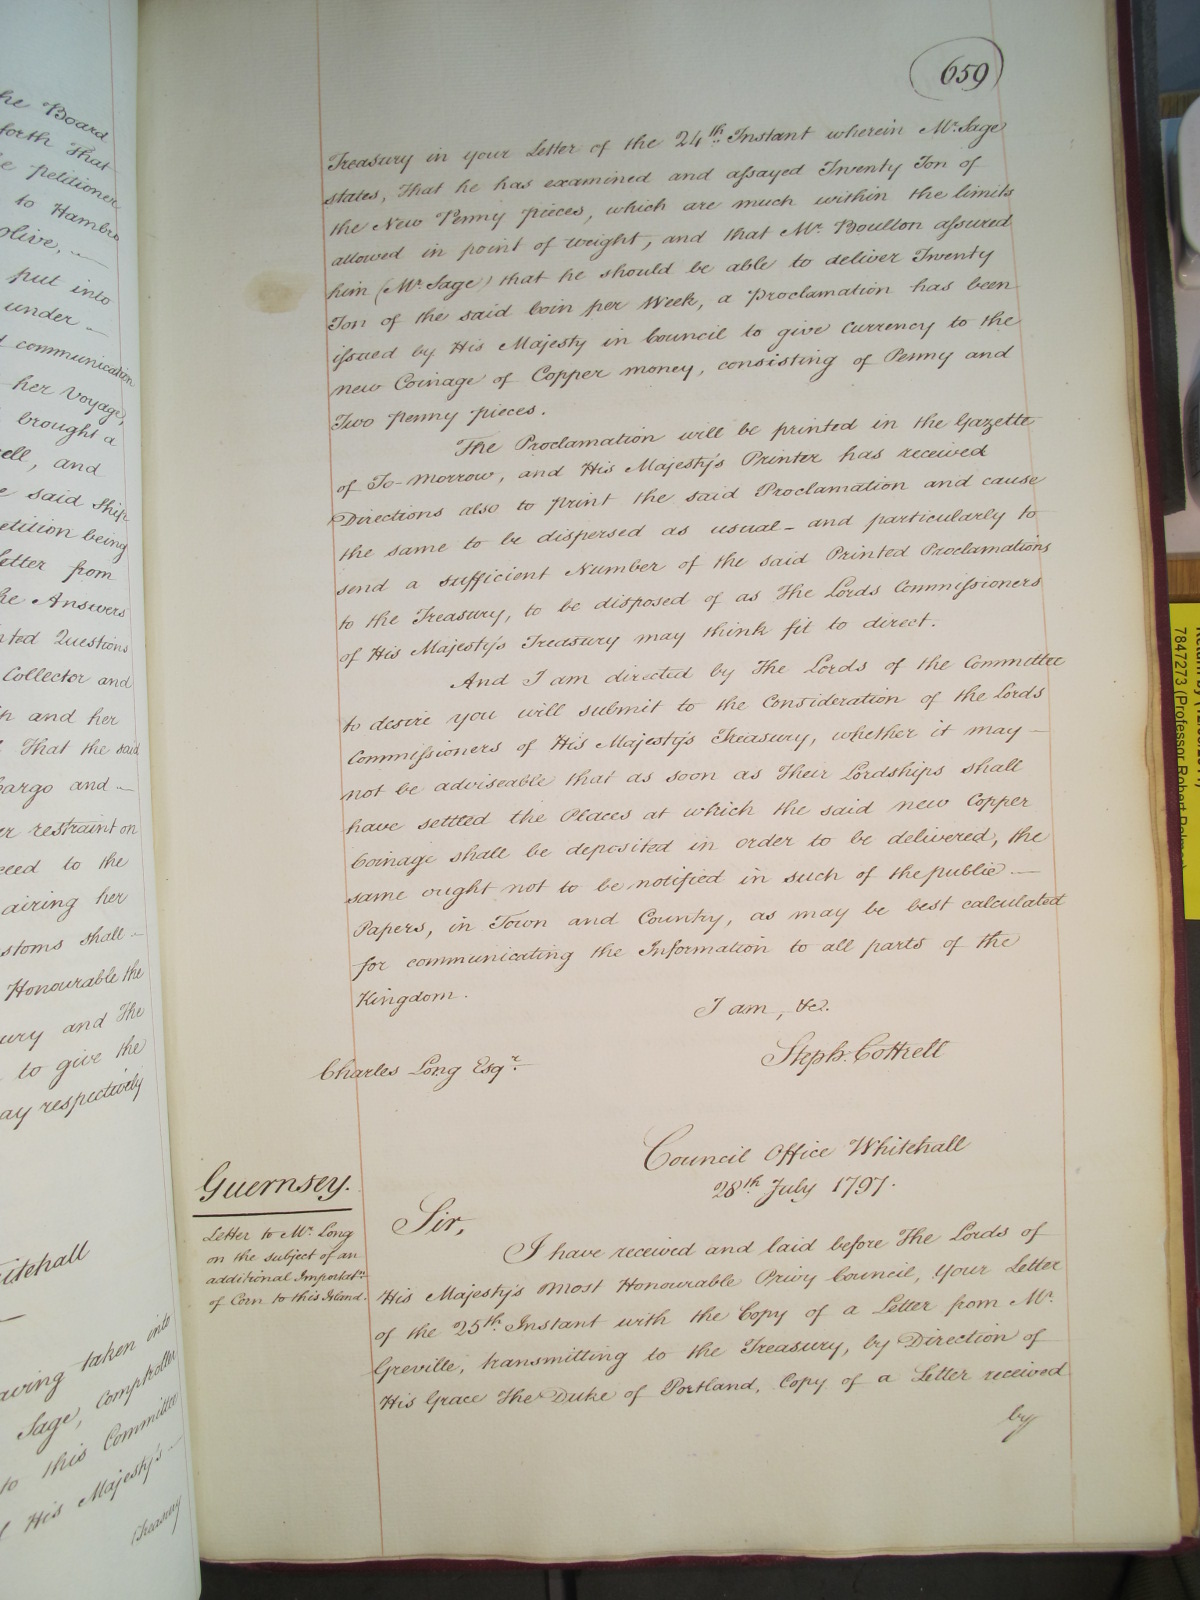 he Board
forth that
e petitioner
to Hambro
olive,
put into
under
communication
her Voyage,
brought a
ell, and
e said Ship
etition being
etter from
he Answers
nted Questions
Collector and
and her
That the said
argo and
er restraint on
ceed to the
airing her
stoms shall
Honourable the
ury and The
to give the
ay respectively
itehall
aving taken into
Sage, Comptroller
to this Committee
His Majesty's
Treasury
659
Treasury in your Letter of the 24th Instant wherein Mr. Sage
states, That he has examined and assayed Twenty Ton of
the New Penny pieces, which are much within the limits
allowed in point of weight, and that Mr. Boulton assured
him (Mr. Sage) that he should be able to deliver Twenty
Ton of the said Coin per Week, a Proclamation has been
issued by His Majesty in Council to give Currency to the
new Coinage of Copper money, consisting of Penny and
Two penny pieces.
The Proclamation will be printed in the Gazette
of To-morrow, and His Majesty's Printer has received
Directions also to print the said Proclamation and cause
the same to be dispersed as usual - and particularly to
send a sufficient Number of the said Printed Proclamations
to the Treasury, to be disposed of as The Lords Commissioners
of His Majesty's Treasury may think fit to direct.
And I am directed by The Lords of the Committee
to desire you will submit to the Consideration of the Lords
Commissioners of His Majesty's Treasury, whether it may -
not be adviseable that as soon as Their Lordships shall
have settled the Places at which the said new Copper
Coinage shall be deposited in order to be delivered, the
same ought not to be notified in such of the public -
Papers, in Town and Country, as may be best calculated
for communicating the Information to all parts of the
Kingdom.
I am, &c.
Steph. Cottrell
Charles Long Esqr.
Council Office Whitehall
28th July 1797.
Guernsey.
Letter to Mr. Long
on the subject of an
additional Importatn.
of Corn to this Island.
Sir,
I have received and laid before The Lords of
His Majesty's most Honourable Privy Council, your Letter
of the 25th Instant with the Copy of a Letter from Mr.
Greville, transmitting to the Treasury, by Direction of
His Grace The Duke of Portland, Copy of a Letter received
by
7847273 (Professor Robert